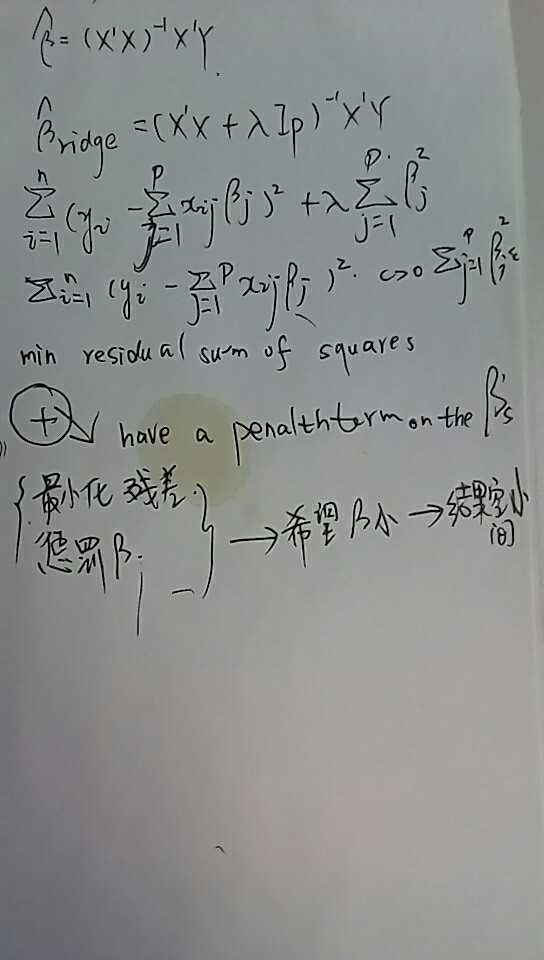 β̂ = (X'X)⁻¹X'Y.
β̂ridge = (X'X + λIp)⁻¹X'Y
∑ⁿᵢ₌₁ (yi - ∑ᵖⱼ₌₁ xij βj)² + λ ∑ᵖⱼ₌₁ βj²
∑ⁿᵢ₌₁ (yi - ∑ᵖⱼ₌₁ xij βj)². c>0 ∑ᵖⱼ₌₁ βj² ≤
min residual sum of squares
⊕↘ have a penalthterm on the β's
{ 最小化 残差.
惩罚 β. } → 希望 β小 → 结果空小
间